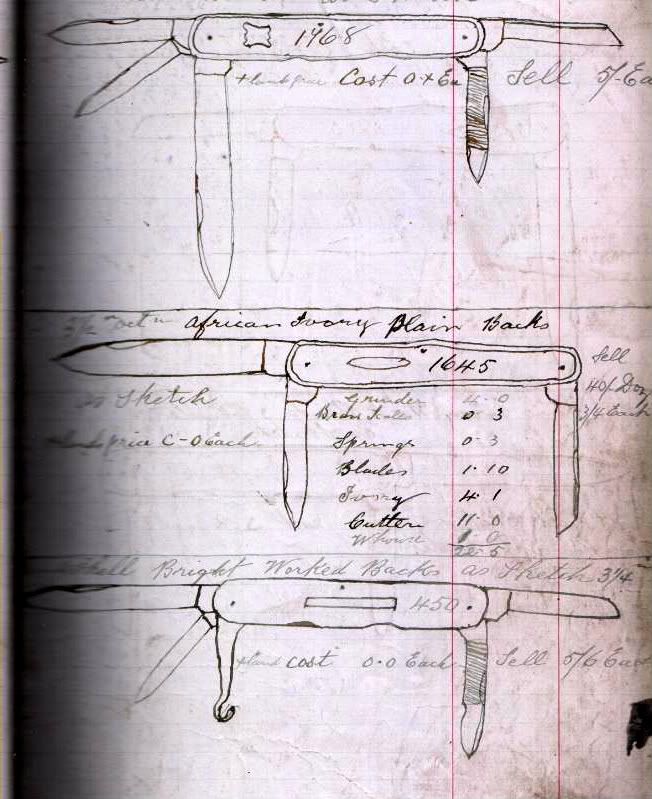 1968
Cost 0.+ Ea Sell 5/- Ea
African Ivory Plain Backs
1645
Sell
40/ Doz
3/4 Each
as Sketch
Grinder 4.0
Brass Scales 0 3
price C-0 Each
Springs 0.3
Blades 1.10
Ivory 4.1
Cutler 11.0
Whouse 1.0
22.5
Shell Bright Worked Backs as Sketch 3 1/4
450
cost 0.0 Each Sell 5/6 Each